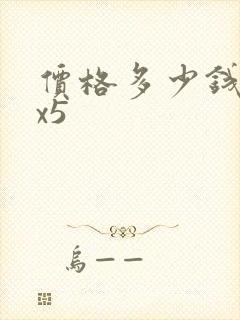 價格多少錢
x5
烏一一